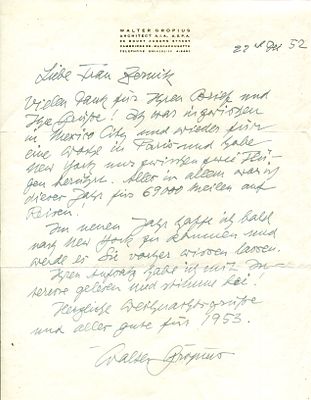 WALTER GROPIUS
ARCHITECT A.I.A. A.S.P.A.
CAMBRIDGE 38, MASSACHUSETTS
22 Dez 52
Liebe Frau
Vielen Dank für Ihren Brief und
Ihre Grüsse! Ich war inzwischen
in Mexico City und wieder für
eine Woche in Paris und habe
New York nur zwischen zwei Flü-
gen berührt. Alles in allem war ich
dieses Jahr für 69000 Meilen auf
Reisen.
Im neuen Jahr hoffe ich bald
nach New York zu kommen und
werde es Sie vorher wissen lassen.
Ihren Aufsatz habe ich mit In-
teresse gelesen und stimme bei!
Herzliche Weihnachtsgrüsse
und alles gute für 1953.
Walter Gropius